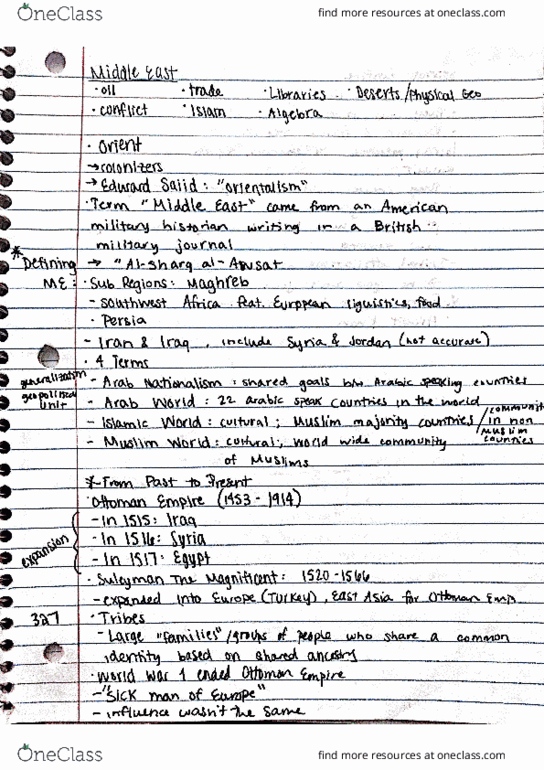 OneClass
find more resources at oneclass.com
Middle East
· oil · trade · Libraries · Deserts/Physical Geo
· conflict · Islam · Algebra
· Orient
→ colonizers
→ Edward Saiid : "orientalism"
· Term "Middle East" came from an American
military historian writing in a British
military journal
* Defining → "Al-sharq al-Awsat
ME: · Sub Regions: Maghreb
- southwest Africa feat. European liguistics, food
· Persia
- Iran & Iraq , include Syria & Jordan (not accurate)
· 4 Terms
generalization
geopolitical unit
- Arab Nationalism : shared goals b/w Arabic speaking countries
- Arab World : 22 arabic speak countries in the world
- Islamic World : cultural ; Muslim majority countries / communities in non muslim countries
- Muslim World : cultural ; world wide community
of Muslims
* From Past to Present
· Ottoman Empire (1453 - 1914)
expansion
- In 1515: Iraq
- In 1516: Syria
- In 1517: Egypt
· Suleyman The Magnificent: 1520-1566
- expanded into Europe (Turkey), East Asia for Ottoman Emp.
327 · Tribes
- Large "families"/groups of people who share a common
identity based on shared ancestry
· World War 1 ended Ottoman Empire
- "Sick man of Europe"
- influence wasn't the same
OneClass
find more resources at oneclass.com